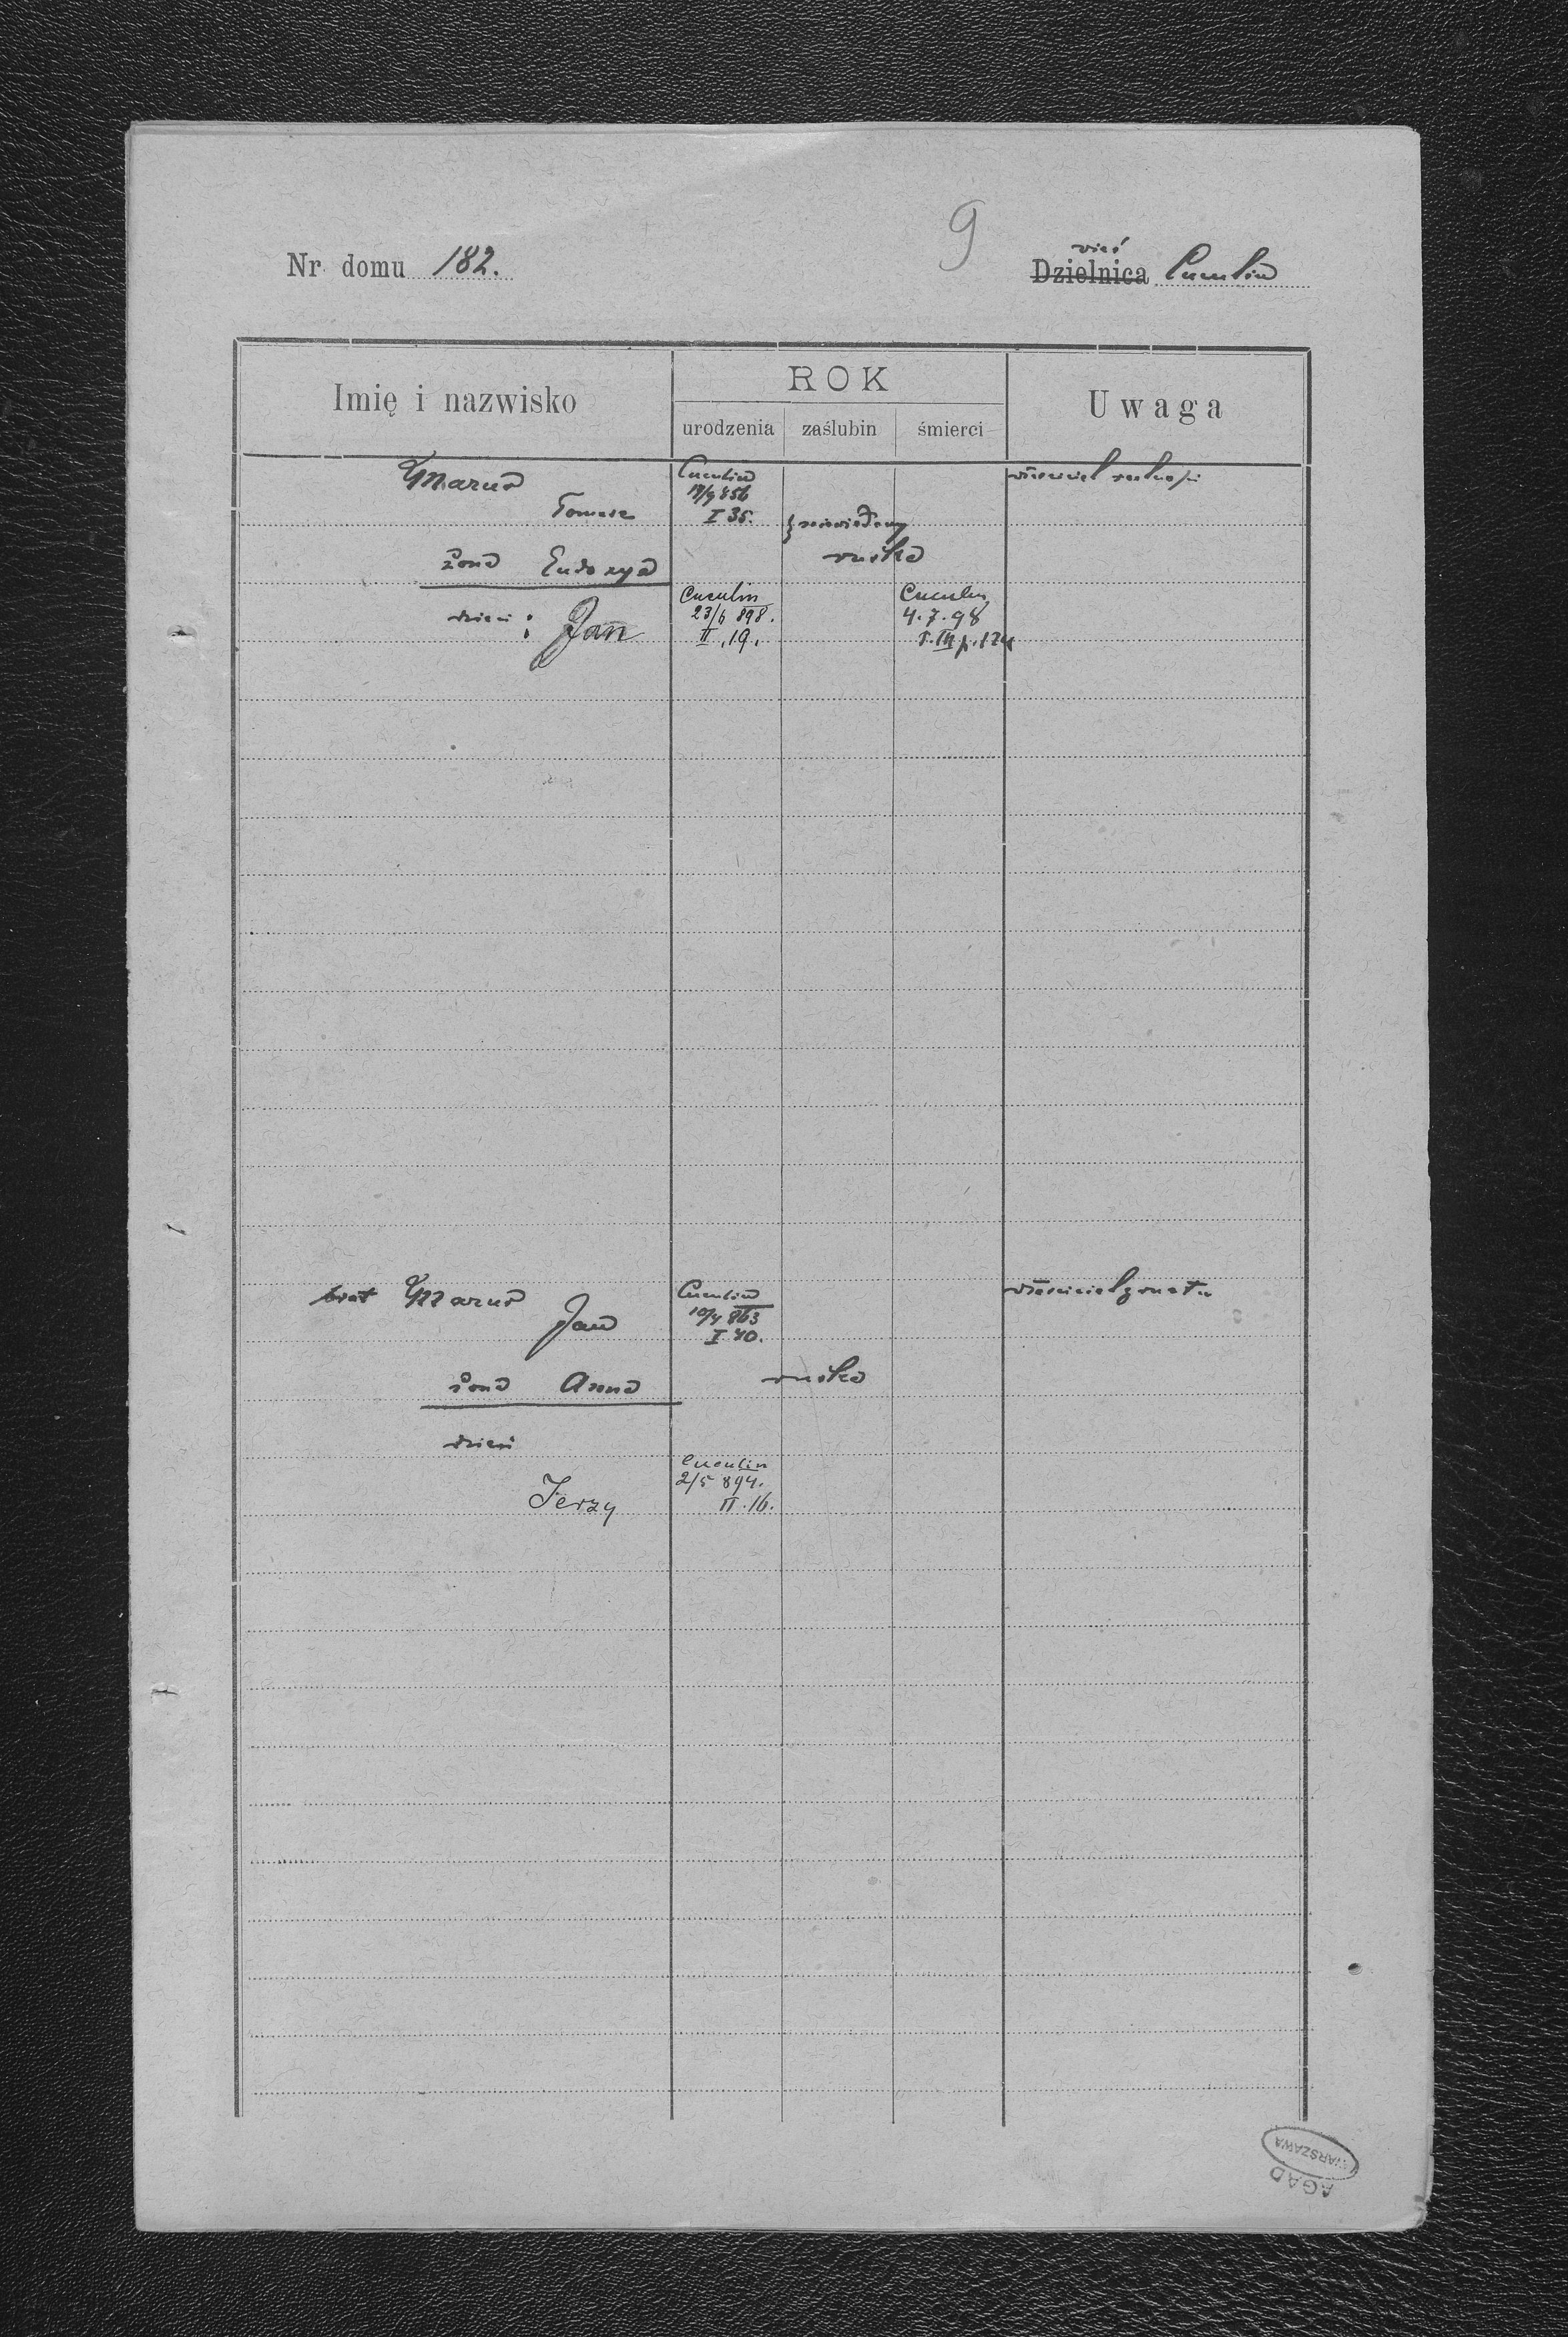 9
Nr. domu 182.
wieś
Dzielnica Cuculin
Imię i nazwisko
ROK
urodzenia zaślubin śmierci
Uwaga
Mazur Cuculin właściciel
Tomasz I 35. niewiadomy
żona Eudoxya ruska
dzieci: Jan Cuculin 23/6 898. II. 19. Cuculin 4.7.98 T. III p. 124
brat Mazur Cuculin właściciel gruntu
Jan 10/4 863 I 40.
żona Anna ruska
dzieci
Jerzy Cuculin 2/5 894. II. 16.
AGAD
WARSZAWA